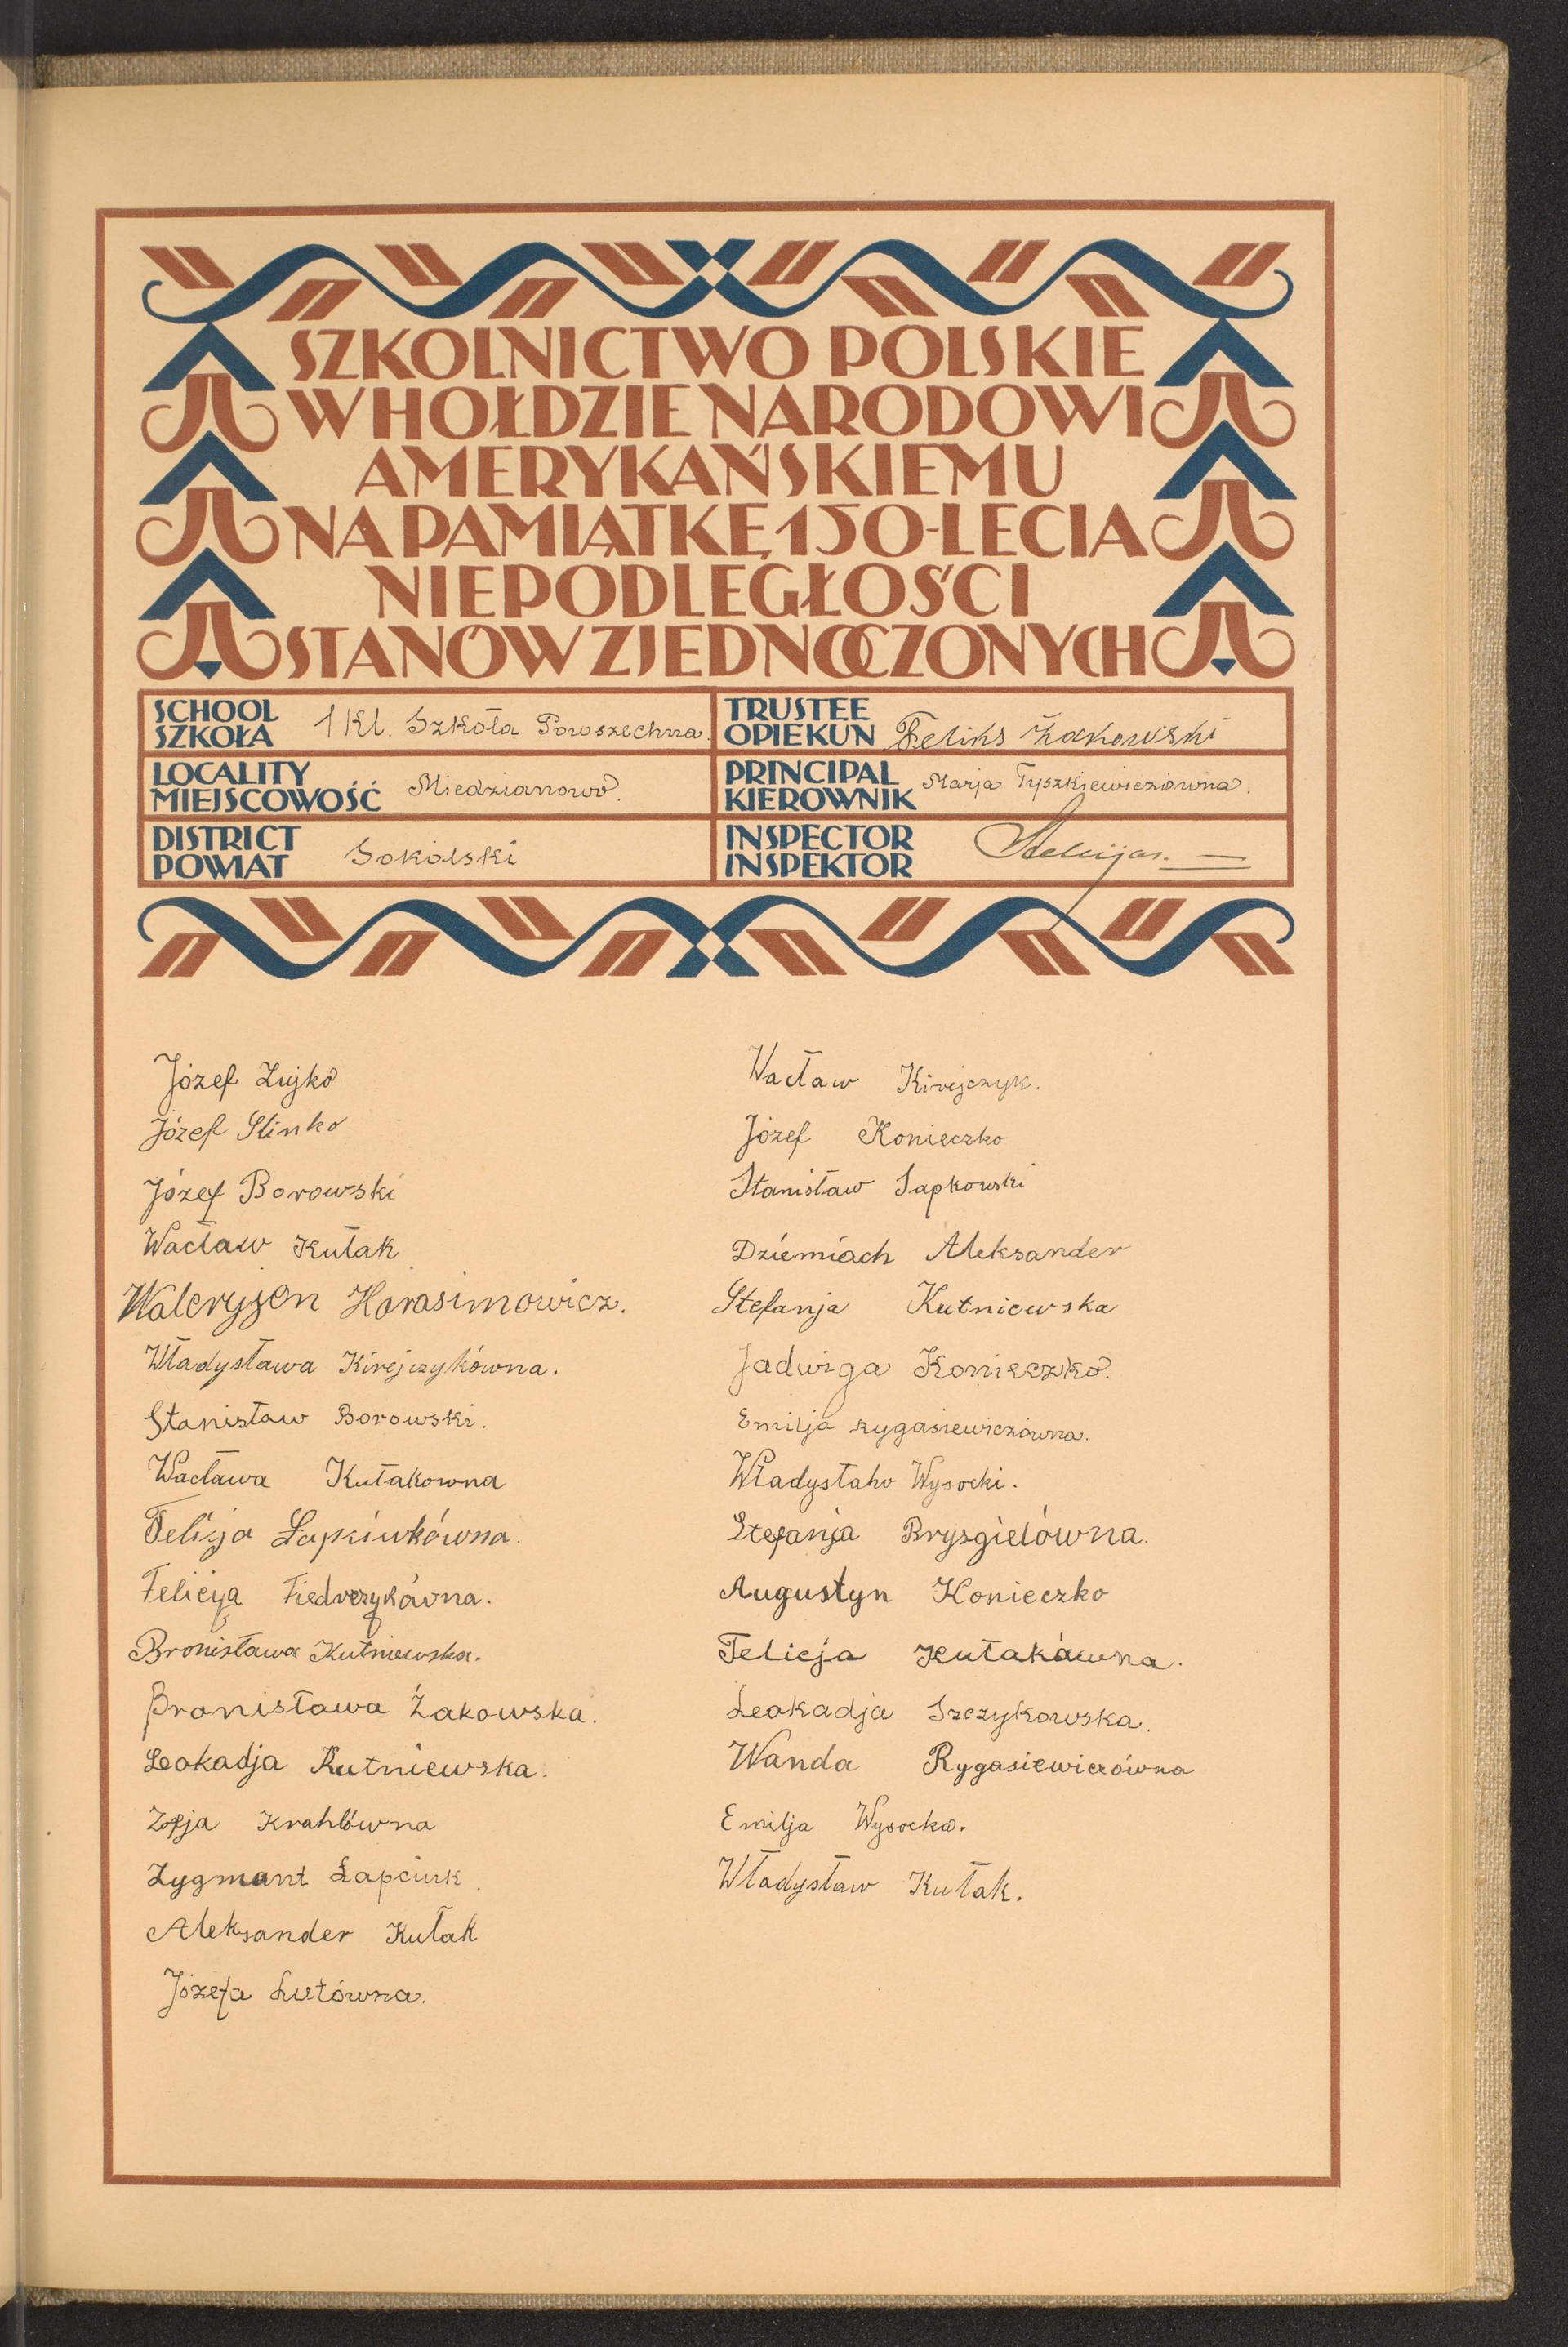 SZKOLNICTWO POLSKIE
W HOŁDZIE NARODOWI
AMERYKAŃSKIEMU
NA PAMIĄTKĘ 150-LECIA
NIEPODLEGŁOŚCI
STANÓW ZJEDNOCZONYCH
SCHOOL
SZKOŁA 1 Kl. Szkoła Powszechna.
TRUSTEE
OPIEKUN Feliks Żakowski
LOCALITY
MIEJSCOWOŚĆ Miedzianowo.
PRINCIPAL
KIEROWNIK Marja Tyszkiewiczówna.
DISTRICT
POWIAT Sokólski
INSPECTOR
INSPEKTOR
Józef Zujko
Józef Slinko
Józef Borowski
Wacław Kułak
Waleryjen Horasimowicz.
Władysława Kirejczykówna.
Stanisław Borowski.
Wacława Kułakowna
Felicja Łapciukówna.
Felicija Fiedorczykówna.
Bronisława Kutniewska.
Bronisława Żakowska.
Leokadja Kutniewska.
Zofja Krahlówna
Zygmunt Łapciuk.
Aleksander Kułak
Józefa Lutówna.
Wacław Kirejczyk.
Józef Konieczko
Stanisław Sapkowski
Dziemiach Aleksander
Stefanja Kutniewska
Jadwiga Konieczko.
Emilja Rygasiewiczówna.
Władysław Wysocki.
Stefanja Brysgielówna.
Augustyn Konieczko
Felicja Kułakówna.
Leokadja Szczykowska.
Wanda Rygasiewiczówna
Emilja Wysocka.
Władysław Kułak.